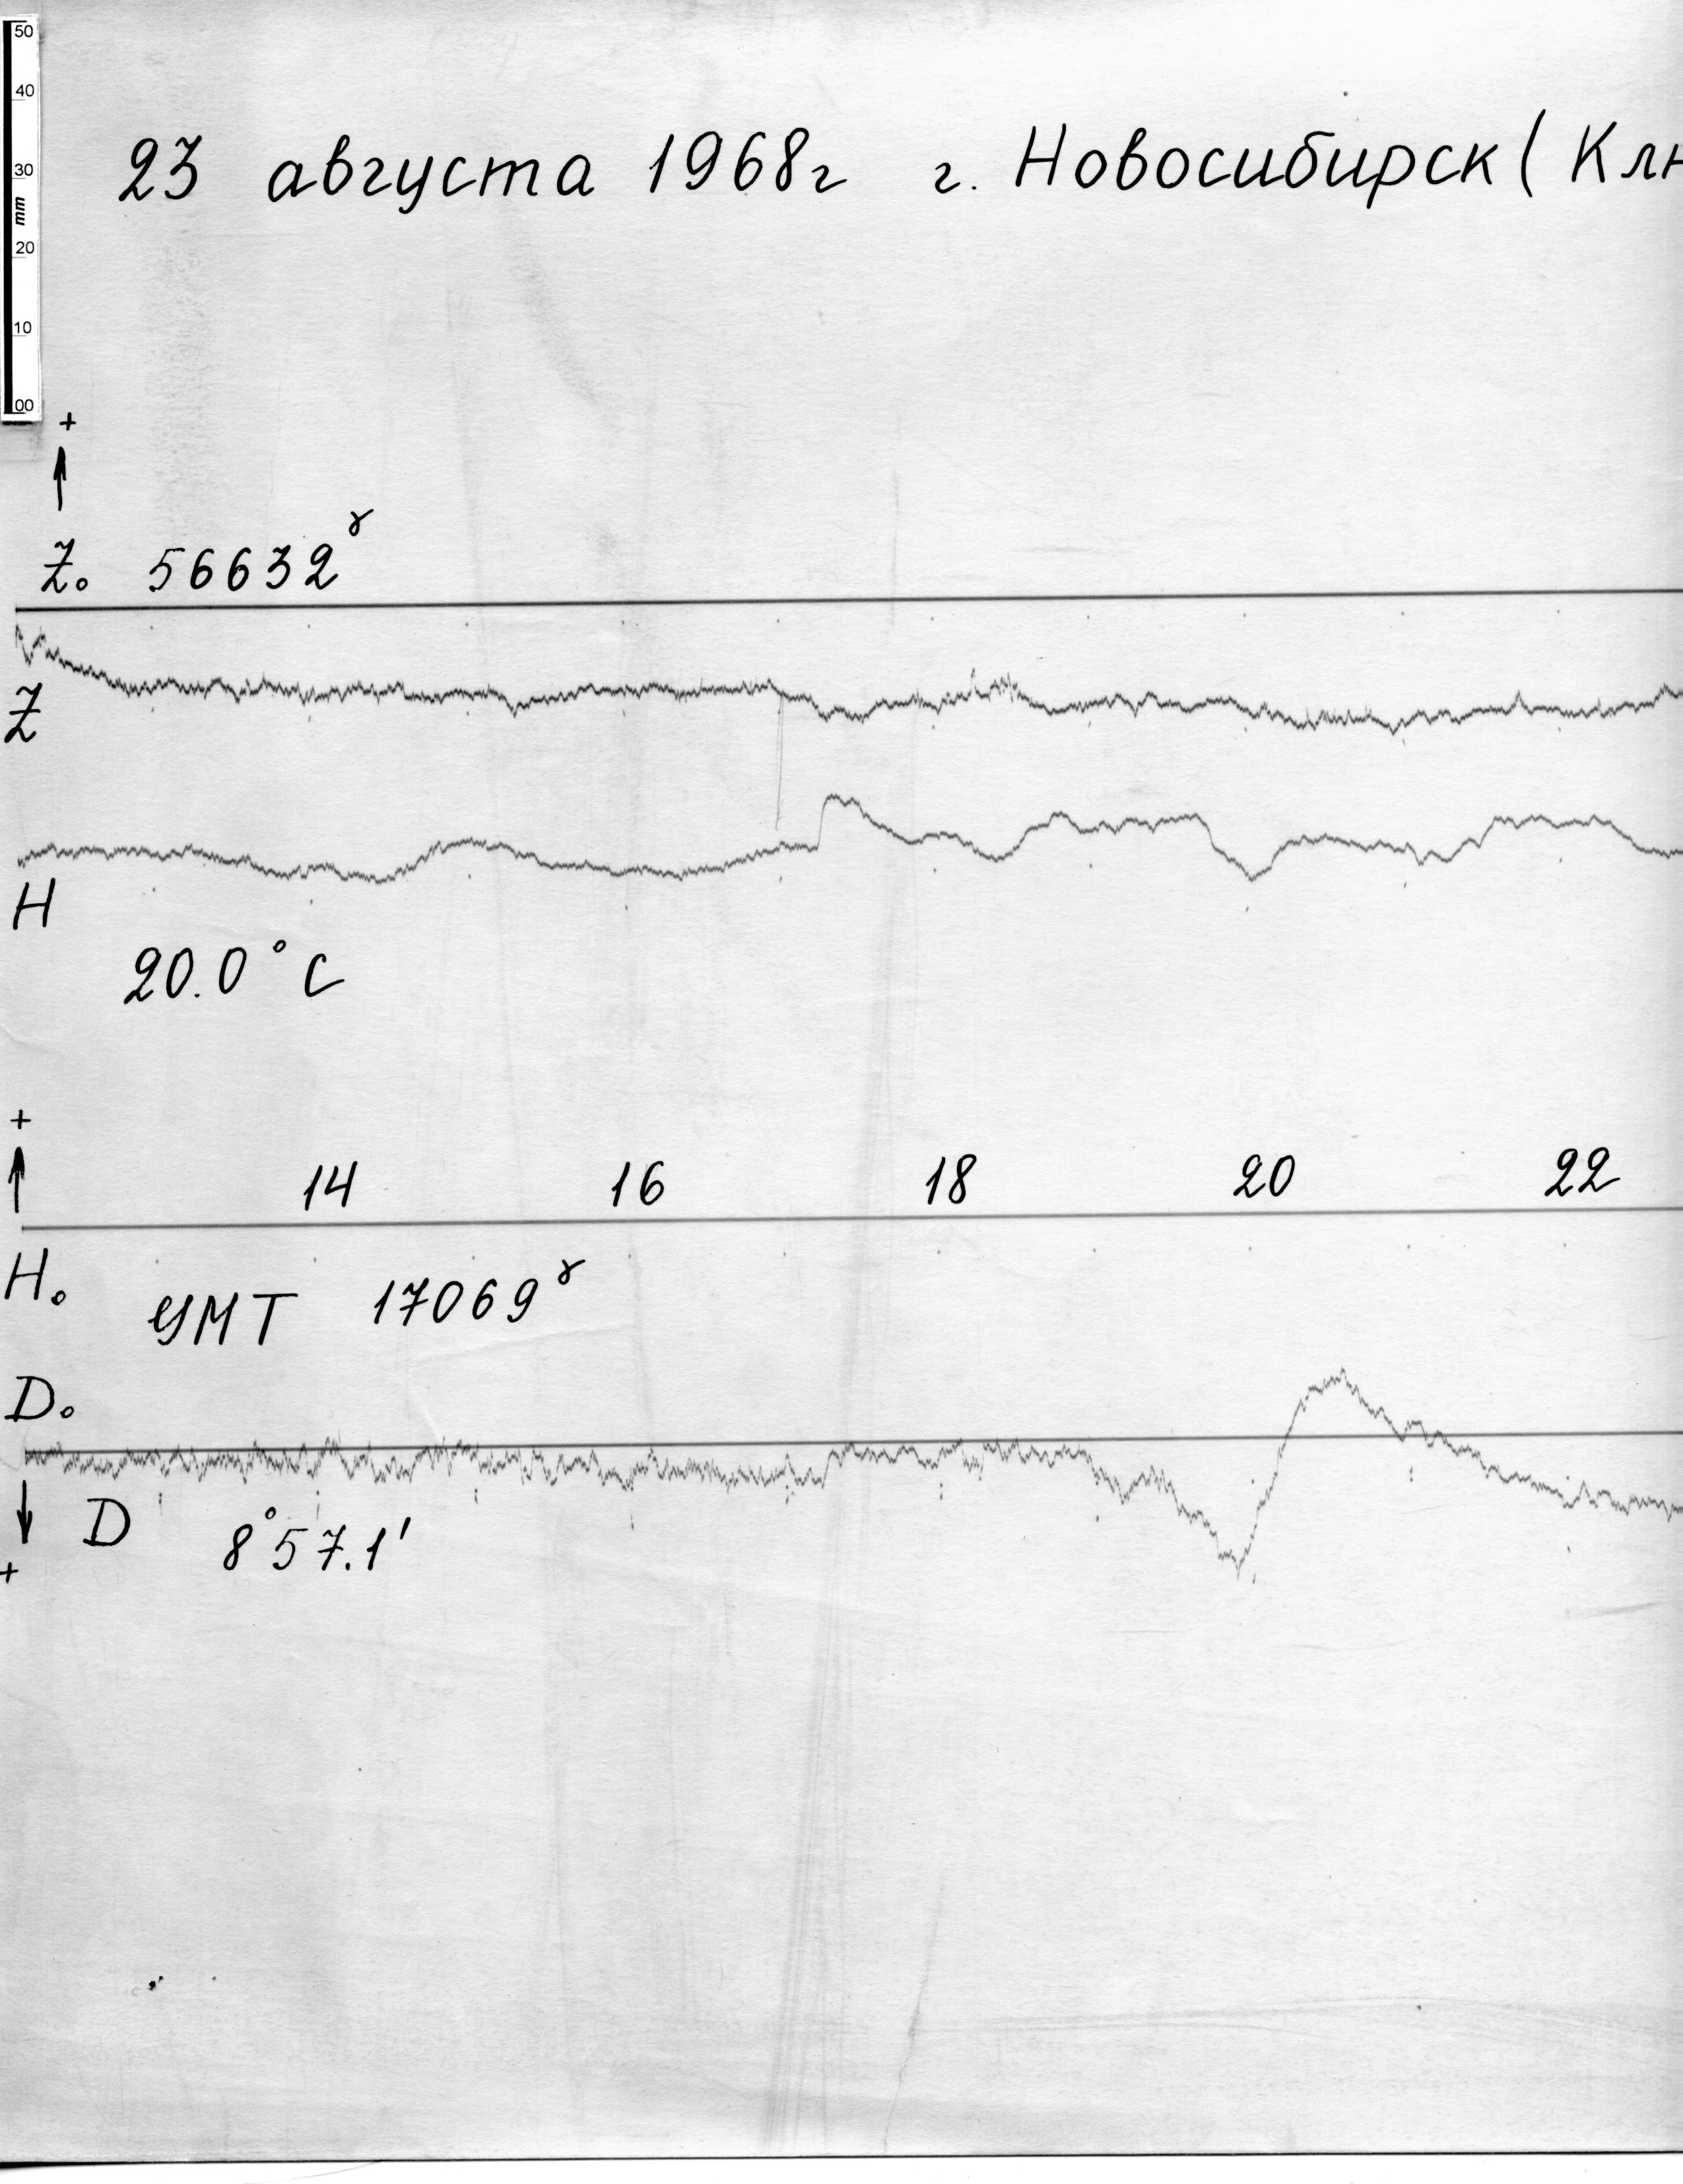 50
40
30
mm
20
10
00
23 августа 1968г г. Новосибирск (Клю
+
Z₀ 56632ᵞ
Z
H
20.0°C
+
14 16 18 20 22
H₀ УМТ 17069ᵞ
D₀
D 8°57.1'
+